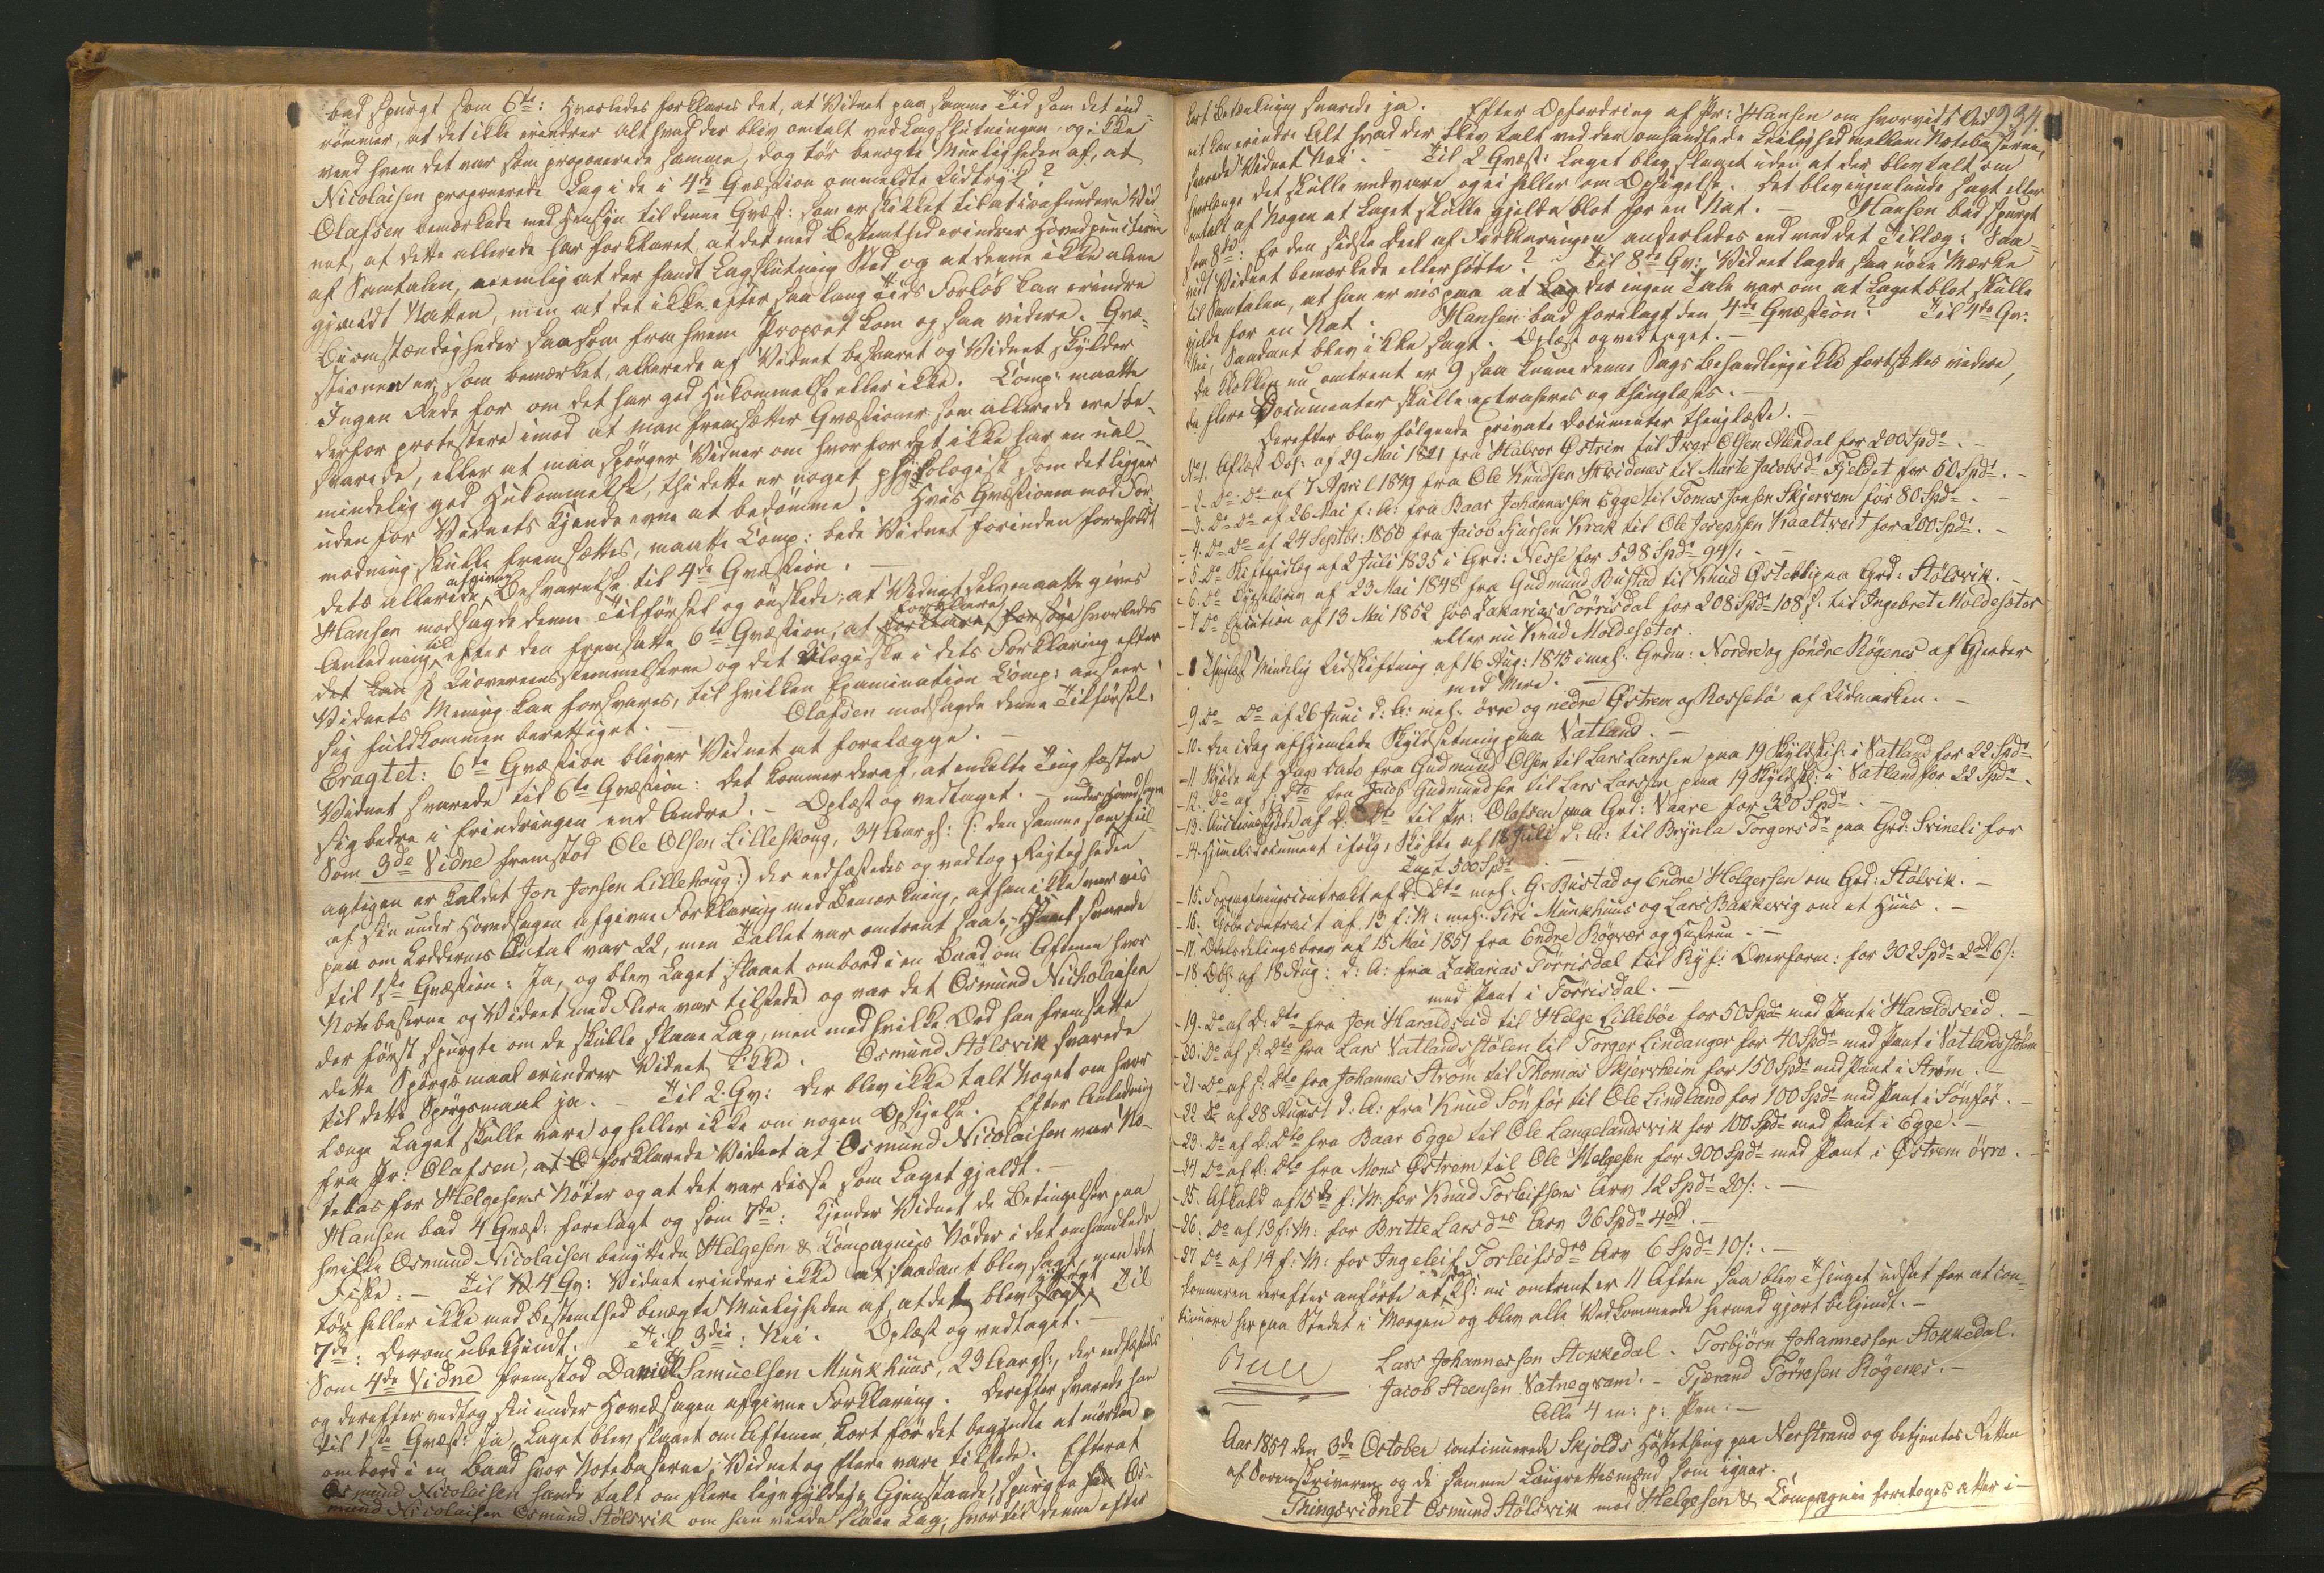 bad spurgt som 6te: Hvorledes forklares det, at Vidnet paa samme Tid som det ind-
rømmer, at det ikke erindrer Alt hvad der blev omtalt ved Lagslutningen, og ikke
veed hvem det var som proponerede samme, dog tør benægte Mueligheden af, at
Nicolaisen proponerede Lag i de i 4de Qvæstion ommeldte Udtryk?
Olafsen bemærkede med Hensyn til denne Qvæst: som er skikket til at irrefundere Vid-
net, at dette allerede har forklaret, at det med Bestemthed erindrer Hovedpuncterne
af Samtalen, nemlig at der fandt Lagslutning Sted og at denne ikke alene
gjældt Natten, men at det ikke efter saa lang Tids Forløb kan erindre
Biomstændigheder saasom fra hvem Proponet kom og saa videre. Qvæ-
stionen er, som bemærket, allerede af Vidnet besvaret og Vidnet skylder
Ingen Rede for om det har god Hukommelse eller ikke. Comp: maatte
derfor protestere imod at man fremsætter Qvæstioner som allerede ere be-
svarede, eller at man spørger Vidner om hvorfor det ikke har en ual-
mindelig god Hukommelse, thi dette er noget physologisk som det ligger
uden for Vidnets Kjende evne at bedømme. Hvis Qvæstionen mod For-
modning skulle fremsættes, maatte Comp: bede Vidnet forinden foreholdt
dets allerede afgivne Besvarelse til 4de Qvæstion.
Hansen modsagde denne Tilførsel og ønskede, at Vidnet selv maatte gives
Anledning til efter den fremsatte 6te Qvæstion, at forklare hvorledes
det kan Uoverensstemmelserne og det Ulogiske i dets Forklaring efter
Vidnets Mening kan forsvares, til hvilken Examination Comp: anseer
sig fuldkommen berettiget. Olafsen modsagde denne Tilførsel.
Eragtet: 6te Qvæstion bliver Vidnet at forelægge.
Vidnet svarede til 6te Qvæstion: Det kommer deraf, at enkelte Ting fæster
sig bedre i Erindringen end Andre. - Oplæst og vedtaget. -
Som 3de Vidne fremstod Ole Olsen Lilleskoug, 34 Aar gl: (: den samme som under Hovedsagen feil-
agtigen er kaldet Jon Jonsen Lillehoug:) der eedfæstedes og vedtog Rigtigheden
af sin under Hovedsagen afgivne Forklaring med Bemærkning, at han ikke var vis
paa om Loddernes Antal var 22, men Tallet var omtrent saa. Han svarede
til 1ste Qvæstion: Ja, og blev Laget slaaet ombord i en Baad om Aftenen hvor
Notebaserne og Vidnet med Flere var tilstede og var det Osmund Nicholaisen
der først spurgte om de skulle slaae Lag, men med hvilke Ord han fremsatte
dette Spørgsmaal erindrer Vidnet ikke. Osmund Stølsvik svarede
til dette Spørgsmaal ja. - Til 2 Qv: Der blev ikke talt Noget om hvor
længe Laget skulle vare og heller ikke om nogen Opsigelse. Efter Anledning
fra Pr: Olafsen, forklarede Vidnet at Osmund Nicolaisen var No-
tebas for Helgesens Nøter og at det var disse som Laget gjaldt. -
Hansen bad 4 Qvæst: forelagt og som 7de: Kjender Vidnet de Betingelser paa
hvilke Osmund Nicolaisen benyttede Helgesen & Compagnies Nøder i det omhandlede
Fiske. - Til 4 Qv: Vidnet erindrer ikke at saadant blev sagt, men det
tør heller ikke med Bestemthed benægte Mueligheden af, at det blev yttret. Til
7de: Derom ubekjendt. Til 3die: Nei. Oplæst og vedtaget. -
Som 4de Vidne fremstod Daniel Samuelsen Munkhuus, 23 Aar gl:, der eedfæstedes
og derefter vedtog sin under Hovedsagen afgivne Forklaring. Derefter svarede han
til 1ste Qvæst: Ja, Laget blev slaaet om Aftenen, kort før det begyndte at mørkne
ombord i en Baad hvor Notebaserne, Vidnet og flere vare tilstede. Efterat
Osmund Nicolaisen havde talt om flere ligegyldige Gjenstande, spurgte Os-
mund Nicolaisen Osmund Stølsvik om han vilde slaae Lag, hvortil denne efter
934.
kort Betænkning svarede ja. Efter Opfordring af Pr: Hansen om hvorvidt Vid-
net kan erindre Alt hvad der blev talt ved den omhandlede Leilighed mellem Notebaserne,
svarede Vidnet Nei. Til 2 Qvæst: Laget blev slaaet uden at der blev talt om
hvorlænge det skulle vedvare og ei heller om Opsigelse. Det blev ingenlunde sagt eller
omtalt af Nogen at Laget skulle gjelde blot for en Nat. - Hansen bad spurgt
som 8de: Er den sidste Deel af Forklaringen anderledes end med det Tillæg: Saa-
vidt Vidnet bemærkede eller hørte? Til 8de Qv: Vidnet lagde saa nøie Mærke
til Samtalen, at han er vis paa at der ingen Tale var om at Laget blot skulle
gjelde for en Nat. Hansen bad forelagt den 4de Qvæstion? Til 4de Qv:
Nei, Saadant blev ikke sagt. Oplæst og vedtaget. -
Da Klokken nu omtrent er 9 saa kunne denne Sags Behandling ikke fortsættes videre,
da flere Documenter skulle extraheres og thinglæses. -
Derefter blev følgende private Documenter thinglæste. -
No 1. Aflæst Obl: af 29 Mai 1821 fra Halvor Østrim til Iver Olsen Aleadal for 200 Spdr. -
- 2. Do. Do af 7 April 1849 fra Ole Knudsen Hvidenes til Marte Jacobsdr Fjeldet for 50 Spdr. -
- 3. Do Do af 26 Mai f: A: fra Baar Johannessen Egge til Tomas Jonsen Skjerrem for 80 Spdr. -
- 4. Do Do af 24 Septbr: 1850 fra Jacob Sjursen Krak til Ole Josephsen Kaaltveit for 200 Spdr. -
- 5. Do Skifteudlæg af 2 Juli 1835 i Grd: Nesse for 538 Spdr 94 s. -
- 6. Do Bygselbrev af 23 Mai 1848 fra Gudmund Bustad til Knud Østebø paa Grd: Stølsvik. -
- 7 Do Execution af 13 Mai 1852 hos Zakarias Tørrisdal for 208 Spdr 108 s. til Ingebret Moldesæter
eller nu Knud Moldesæter.
- 8 Thinglæst Mindelig Udskiftning af 16 Aug: 1845 i mel: Grdn: Nordre og søndre Røgenes af Gjerder
med Mere. -
- 9. Do Do af 26 Juni d: A: mel: øvre og nedre Østrem og Rossebø af Udmarken. -
- 10. Den idag afhjemlede Skyldsetning paa Vatland. -
- 11 Skjøde af Dags Dato fra Gudmund Olsen til Lars Larssen paa 19 Skyldskil: i Vatland for 22 Spdr
- 12. Do af s: Dto fra Jacob Gudmundsen til Lars Larssen paa 19 Skyldsk: i Vatland for 22 Spdr
- 13. Auctionsskjøde af D. Dto til Pr: Olafsen paa Grd: Vaare for 320 Spdr. -
- 14. Hjemelsdocument ifølge Skifte af 18 Juli d: A: til Brynla Torgersdr paa Grd: Svineli for
Taxt 500 Spdr -
- 15. Forpagtningscontrakt af d: Dto mel: G. Bustad og Endre Holgersen om Grd: Stølsvik. -
- 16. Kjøbecontract af 13 f: M: mel: Siri Munkhuus og Lars Bakkevig om et Huus. -
- 17. af 15 Mai 1851 fra Endre Røgvær og Hustrue. -
- 18 Obl: af 18 Aug: d: A: fra Zakarias Tørrisdal til Ryf: Overform: for 302 Spdr 2 ort 6 s:
med Pant i Tørrisdal. -
- 19. Do af D: Dto fra Jon Haraldseid til Helge Lillebøe for 50 Spdr med Pant i Haraldseid. -
- 20. Do af s: Dto fra Lars Vatlandsstølen til Torger Lindanger for 40 Spdr med Pant i Vatlandsstølen
- 21. Do af s: Dto fra Johannes Strøm til Thomas Skjersheim for 150 Spdr med Pant i Strøm. -
- 22 Do af 28 August d: A: fra Knud Sønfør til Ole Lindland for 100 Spdr med Pant i Sønfør. -
- 23. Do af D. Dto fra Baar Egge til Ole Langelandsvik for 100 Spdr med Pant i Egge. -
- 24 Do af D: Dto fra Mons Østrem til Ole Helgesen for 300 Spdr med Pant i Østrem øvre. -
- 25. Afkald af 15de f: M: for Knud Torleifsens Arv 12 Spdr 20 s:. -
- 26. Do af 13 f: M: for Britte Larsdrs Arv 36 Spdr 4 ort. -
- 27 Do af 14 f: M: for Ingeleif Torleifsdrs Arv 6 Spdr 10 s:. -
derefter anførte at da Kl: nu omtrent er 11 Aften saa blev Thinget udsat for at con-
tinuere her paa Stedet i Morgen og blev alle Vedkommende hermed gjort bekjendt. -
Lars Johannessen Stokkedal. Torbjørn Johannessen Stokkedal.
Jacob Steensen Vatnegvam. - Tjærand Tørresen Røgenes. -
Alle 4 m: p: Pen: -
Aar 1854 den 3de October continuerede Skjolds Høstething paa Nerstrand og betjentes Retten
af Sorenskriveren og de samme Laugrettesmænd som igaar.
Thingsvidnet Osmund Stølsvik mod Helgesen & Compagnie foretages atter i -